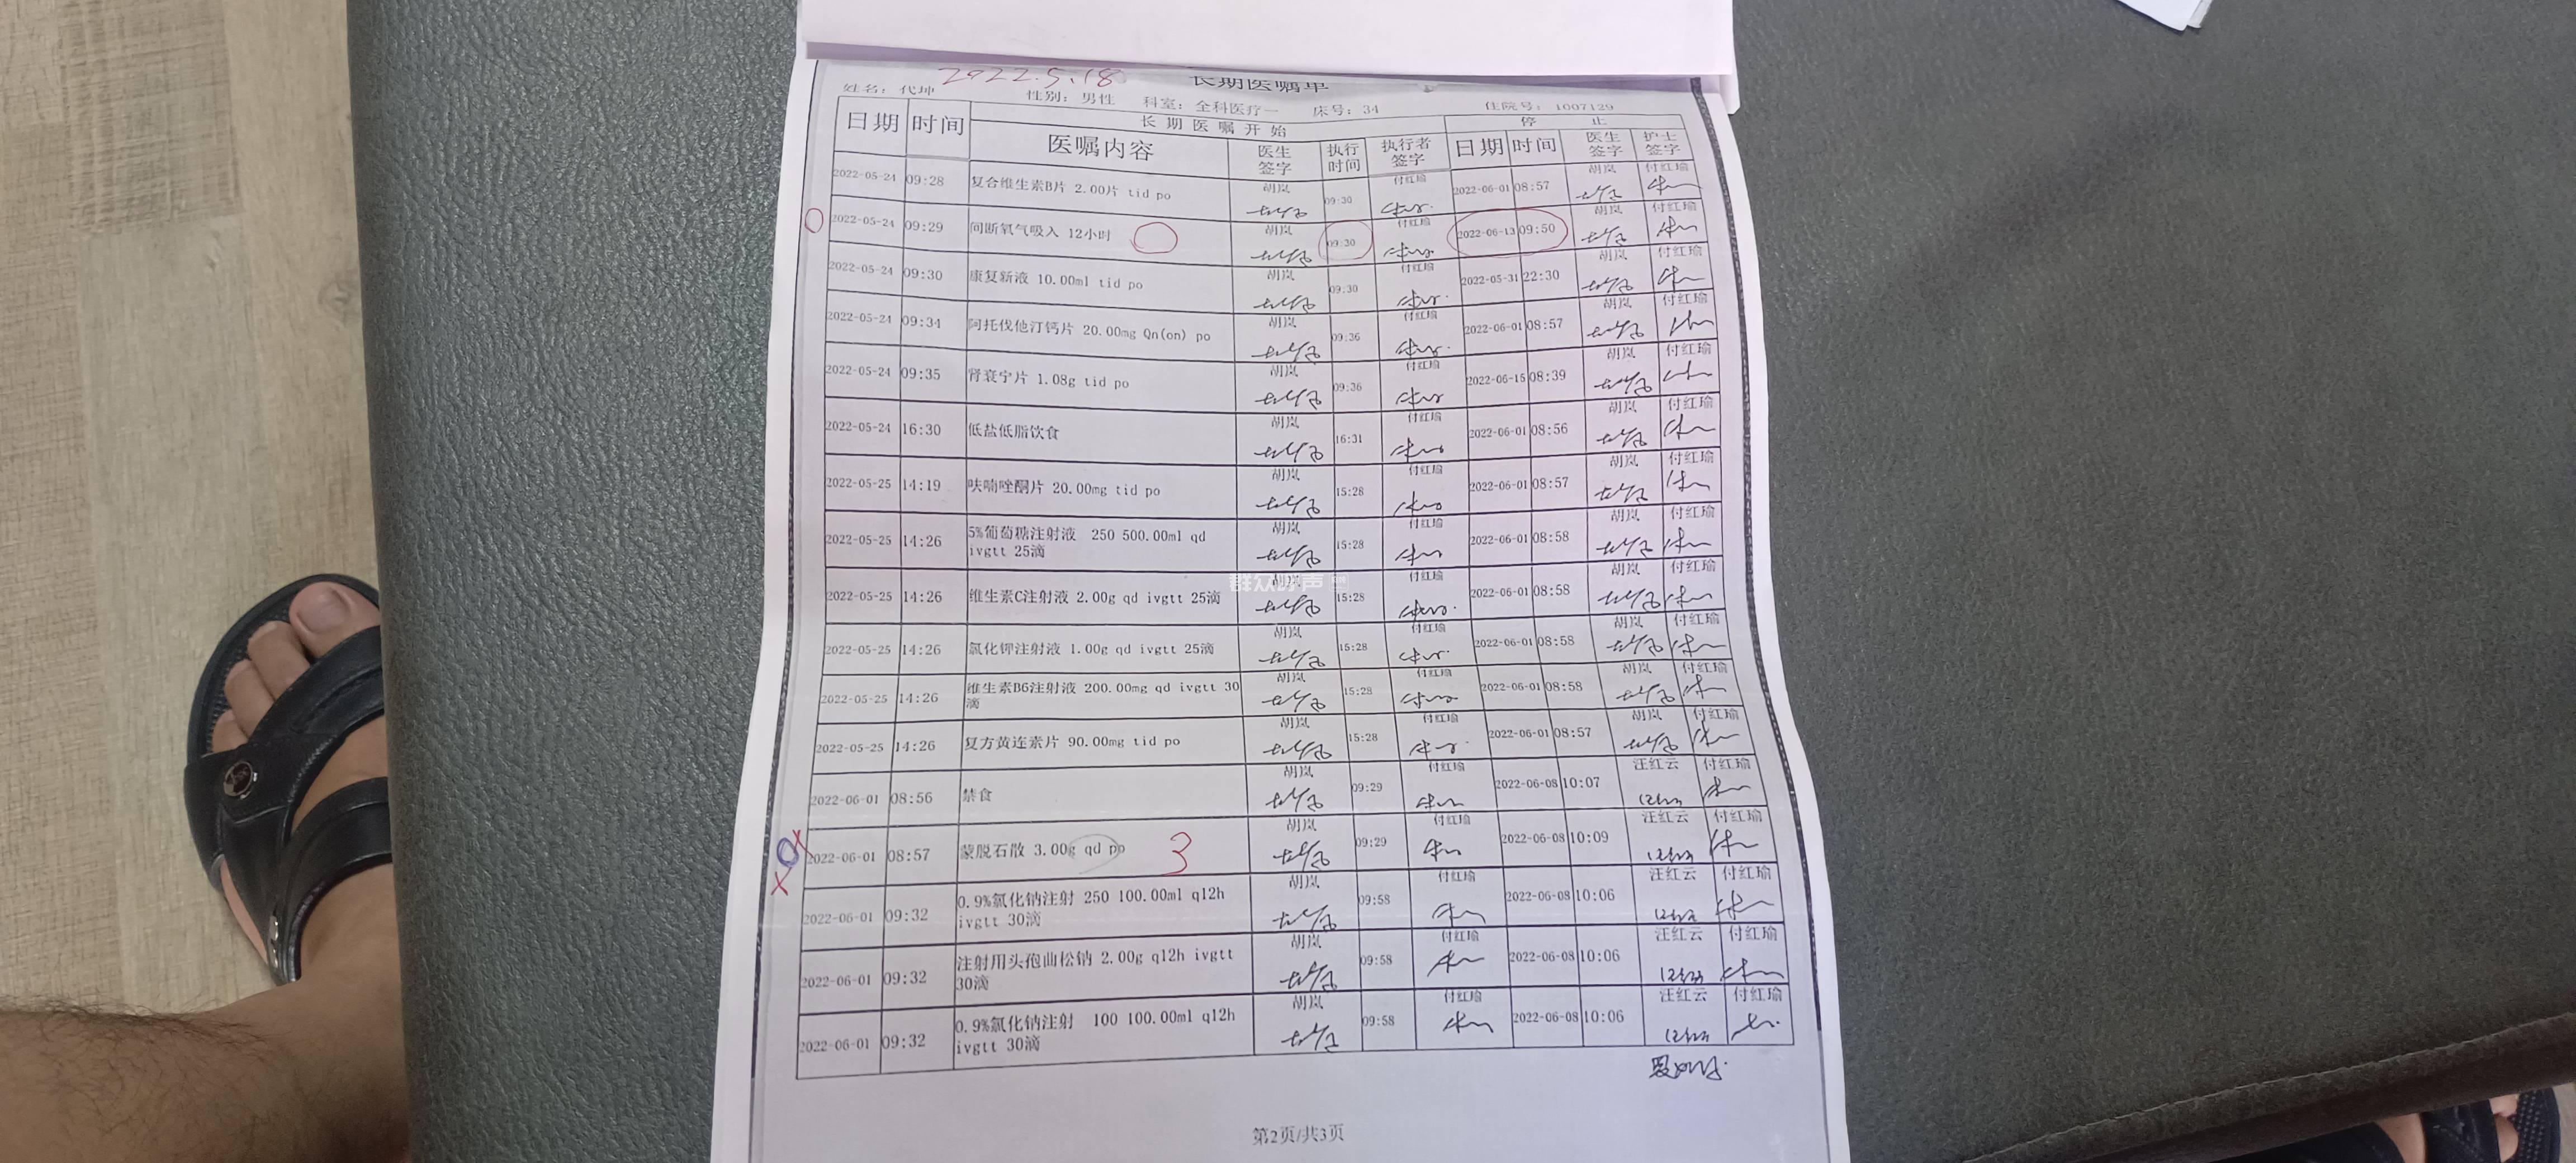 2022.5.18
长期医嘱单
姓名：代坤 性别：男性 科室：全科医疗一 床号：34 住院号：1007129
日期 时间 长期医嘱开始 停止
医嘱内容 医生签字 执行时间 执行者签字 日期 时间 医生签字 护士签字
2022-05-24 09:28 复合维生素B片 2.00片 tid po 胡岚 09:30 付红瑜 2022-06-01 08:57 胡岚 付红瑜
2022-05-24 09:29 间断氧气吸入 12小时 胡岚 09:30 付红瑜 2022-06-13 09:50 胡岚 付红瑜
2022-05-24 09:30 康复新液 10.00ml tid po 胡岚 09:30 付红瑜 2022-05-31 22:30 胡岚 付红瑜
2022-05-24 09:34 阿托伐他汀钙片 20.00mg Qn(on) po 胡岚 09:36 付红瑜 2022-06-01 08:57 胡岚 付红瑜
2022-05-24 09:35 肾衰宁片 1.08g tid po 胡岚 09:36 付红瑜 2022-06-15 08:39 胡岚 付红瑜
2022-05-24 16:30 低盐低脂饮食 胡岚 16:31 付红瑜 2022-06-01 08:56 胡岚 付红瑜
2022-05-25 14:19 呋喃唑酮片 20.00mg tid po 胡岚 15:28 付红瑜 2022-06-01 08:57 胡岚 付红瑜
2022-05-25 14:26 5%葡萄糖注射液 250 500.00ml qd
ivgtt 25滴 胡岚 15:28 付红瑜 2022-06-01 08:58 胡岚 付红瑜
群众呼声
2022-05-25 14:26 维生素C注射液 2.00g qd ivgtt 25滴 胡岚 15:28 付红瑜 2022-06-01 08:58 胡岚 付红瑜
2022-05-25 14:26 氯化钾注射液 1.00g qd ivgtt 25滴 胡岚 15:28 付红瑜 2022-06-01 08:58 胡岚 付红瑜
2022-05-25 14:26 维生素B6注射液 200.00mg qd ivgtt 30
滴 胡岚 15:28 付红瑜 2022-06-01 08:58 胡岚 付红瑜
2022-05-25 14:26 复方黄连素片 90.00mg tid po 胡岚 15:28 付红瑜 2022-06-01 08:57 胡岚 付红瑜
2022-06-01 08:56 禁食 胡岚 09:29 付红瑜 2022-06-08 10:07 汪红云 付红瑜
2022-06-01 08:57 蒙脱石散 3.00g qd po 3 胡岚 09:29 付红瑜 2022-06-08 10:09 汪红云 付红瑜
2022-06-01 09:32 0.9%氯化钠注射 250 100.00ml q12h
ivgtt 30滴 胡岚 09:58 付红瑜 2022-06-08 10:06 汪红云 付红瑜
2022-06-01 09:32 注射用头孢曲松钠 2.00g q12h ivgtt
30滴 胡岚 09:58 付红瑜 2022-06-08 10:06 汪红云 付红瑜
2022-06-01 09:32 0.9%氯化钠注射 100 100.00ml q12h
ivgtt 30滴 胡岚 09:58 付红瑜 2022-06-08 10:06 汪红云 付红瑜
第2页/共3页